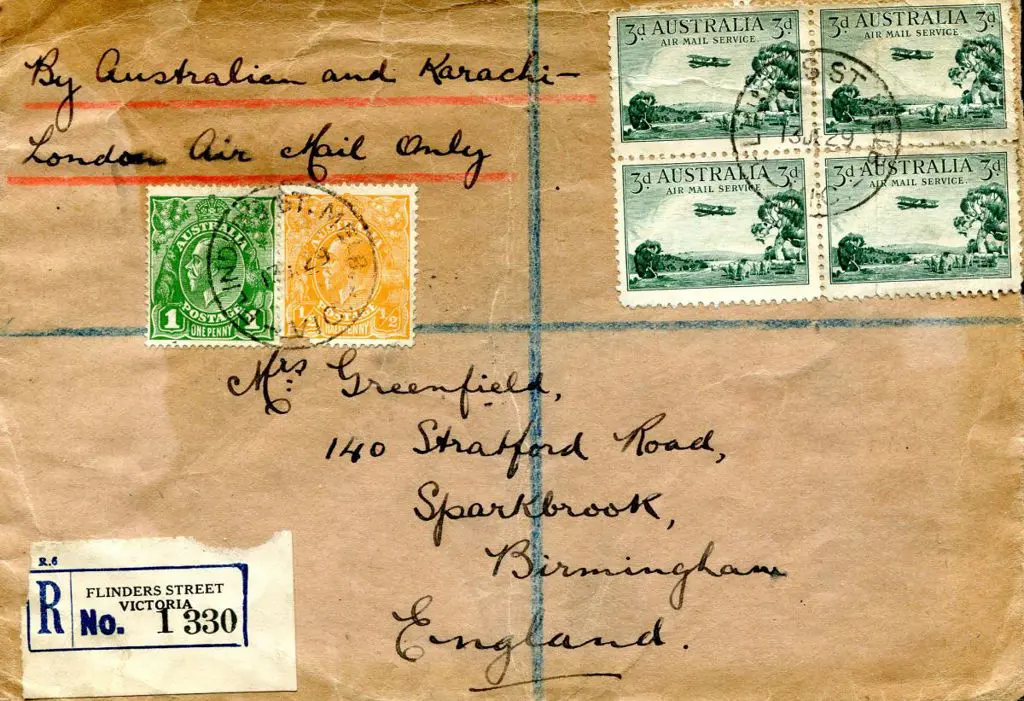 By Australian and Karachi-
London Air Mail Only
3d AUSTRALIA 3d
AIR MAIL SERVICE
3d AUSTRALIA 3d
AIR MAIL SERVICE
3d AUSTRALIA 3d
AIR MAIL SERVICE
3d AUSTRALIA 3d
AIR MAIL SERVICE
AUSTRALIA
POSTAGE
1 1
ONE PENNY
½ ½
HALFPENNY
Mrs Greenfield,
140 Stratford Road,
Sparkbrook,
Birmingham
England.
R.6
R
FLINDERS STREET
VICTORIA
No. 1330